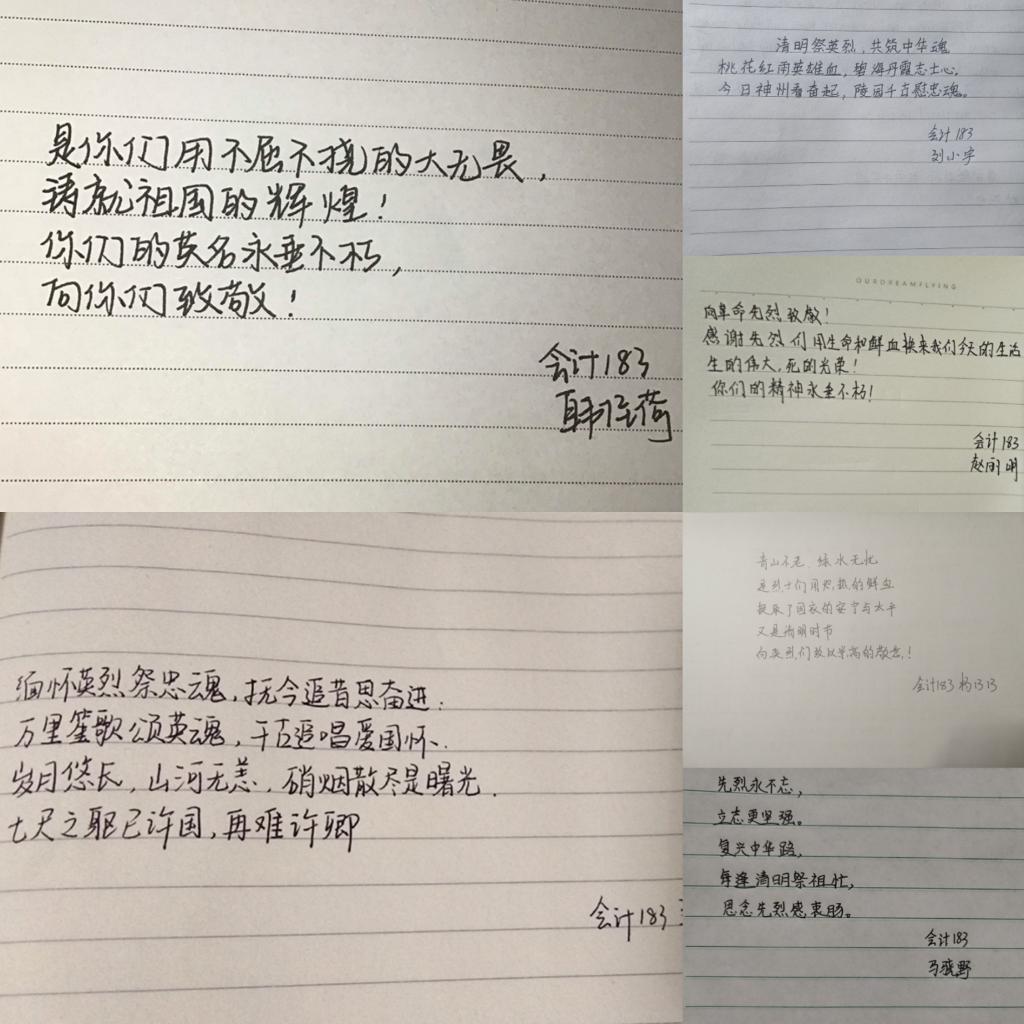 是你们用不屈不挠的大无畏,
铸就祖国的辉煌!
你们的英名永垂不朽,
向你们致敬!
会计183
清明祭英烈,共筑中华魂
桃花红雨英雄血,碧海丹霞志士心。
今日神州看奋起,陵园千古慰忠魂。
会计183
刘小宇
OURDREAMFLYING
向革命先烈致敬!
感谢先烈们用生命和鲜血换来我们今天的生活
生的伟大,死的光荣!
你们的精神永垂不朽!
会计183
赵丽明
缅怀英烈祭忠魂,抚今追昔思奋进.
万里笙歌颂英魂,千古追唱爱国怀.
岁月悠长,山河无恙,硝烟散尽是曙光.
七尺之躯已许国,再难许卿
会计183
青山不老、绿水无忧
是烈士们用炽热的鲜血
换取了国家的安宁与太平
又是清明时节
向英烈们致以崇高的敬意!
会计183 杨
先烈永不忘,
立志更坚强。
复兴中华路,
每逢清明祭祖忙,
思念先烈感衷肠。
会计183
马骁野